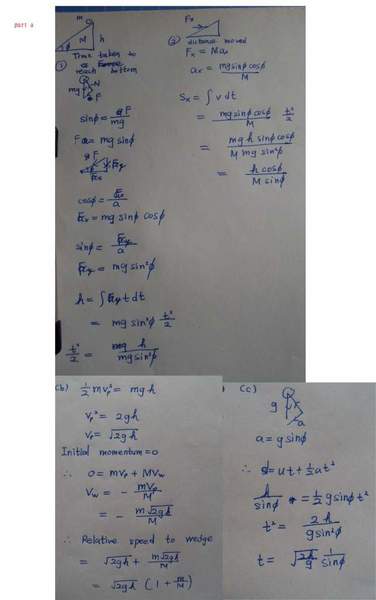 part a
m
M
h
φ
① Time taken to
reach bottom
mg
N
F
sinφ = F/mg
F = mg sinφ
cosφ = /a
= mg sinφ cosφ
sinφ = /a
= mg sin²φ
h = ∫ t dt
= mg sin²φ t²/2
t²/2 = h/mg sin²φ
② Fx
distance moved
Fx = Max
ax = mg sinφ cosφ/M
Sx = ∫ v dt
= mg sinφ cosφ/M t²/2
= mg h sinφ cosφ/M mg sin²φ
= h cosφ/M sinφ
(b) ½ m vp² = mg h
vp² = 2gh
vp = √2gh
Initial momentum = 0
∴ 0 = mvp + MVw
Vw = - mvp/M
= - m√2gh/M
∴ Relative speed to wedge
= √2gh + m√2gh/M
= √2gh (1 + m/M)
(c)
g
a
a = g sinφ
∴ s = ut + ½ at²
h/sinφ = ½ g sinφ t²
t² = 2h/g sin²φ
t = √2h/g 1/sinφ